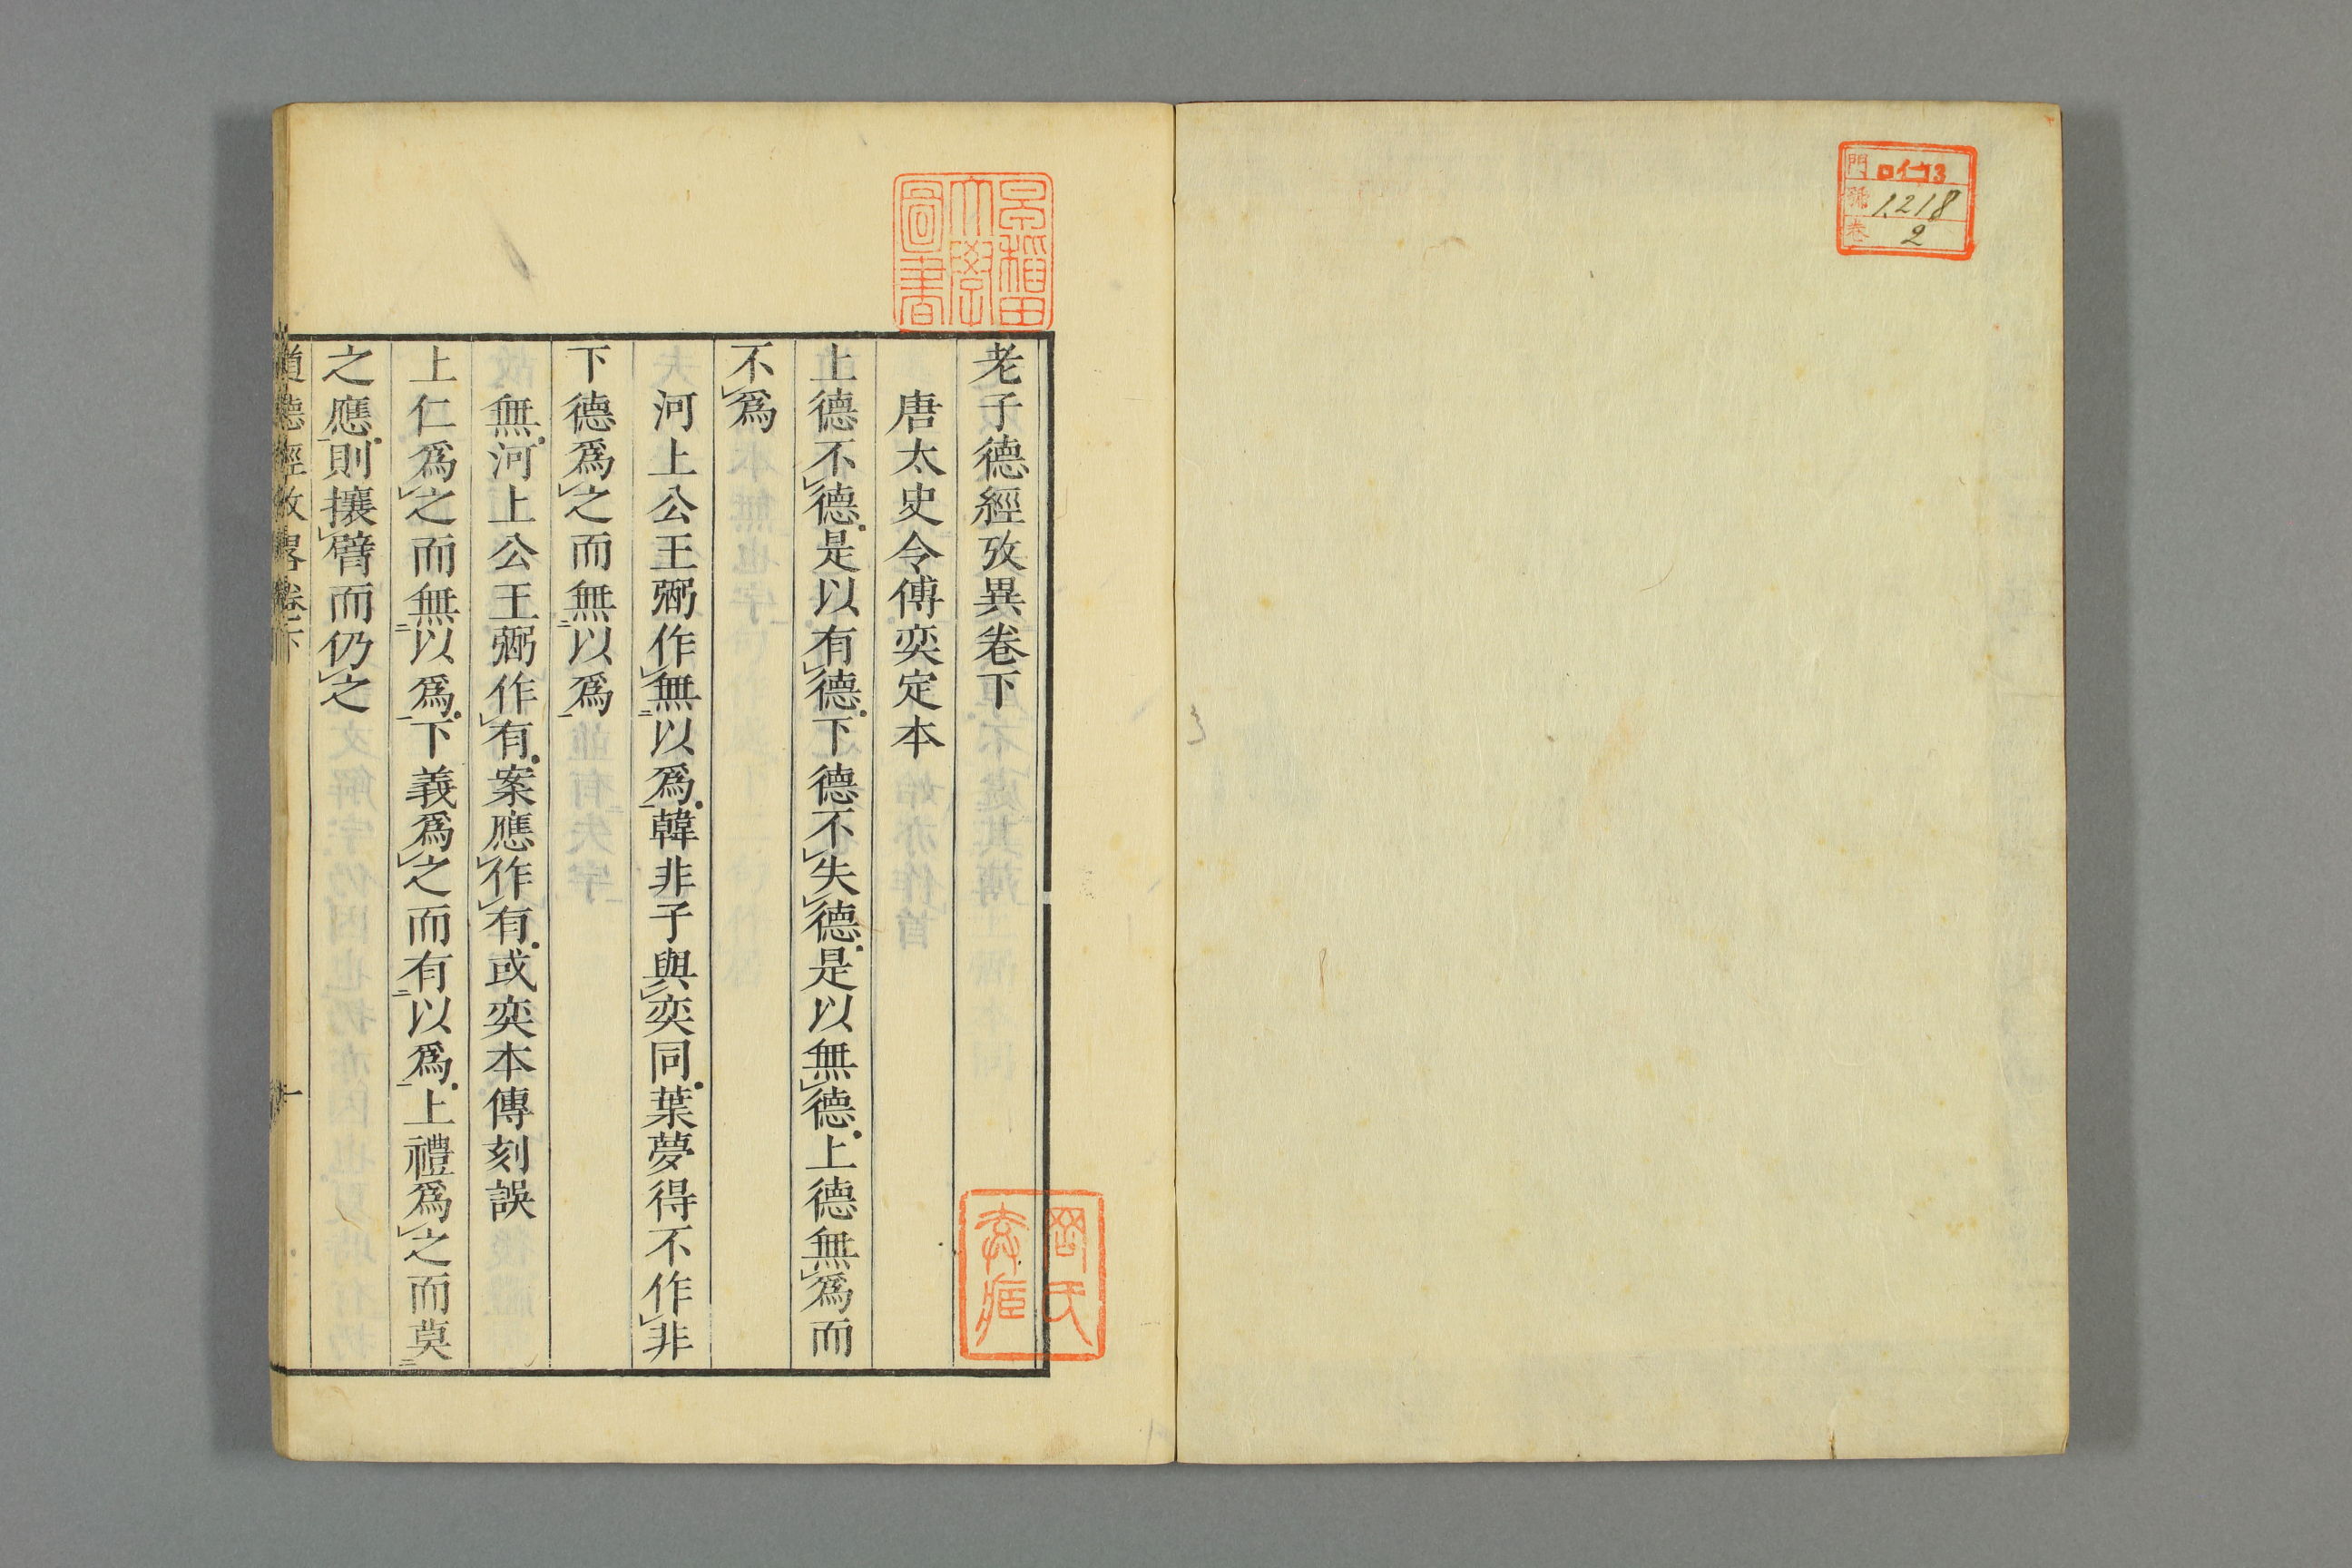 門 ロ仁13
號 1218
卷 2
早稲田大學圖書
老子德經攷異卷下
唐太史令傅奕定本
上德不德是以有德下德不失德是以無德上德無爲而
不爲
河上公王弼作無以爲韓非子與奕同葉夢得不作非
下德爲之而無以爲
無河上公王弼作有案應作有或奕本傳刻誤
上仁爲之而無以爲下義爲之而有以爲上禮爲之而莫
之應則攘臂而仍之
道德經攷異卷下
一